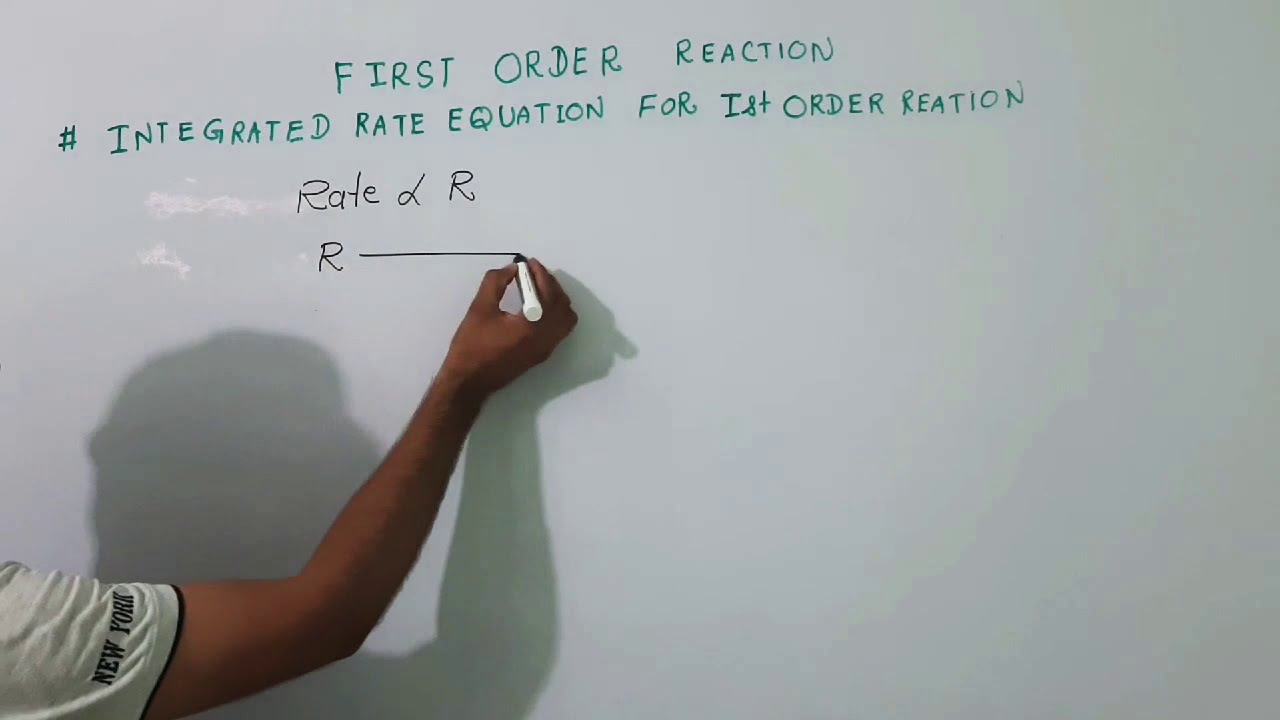 FIRST ORDER REACTION
# INTEGRATED RATE EQUATION FOR Ist ORDER REATION
Rate ∝ R
R
NEW YORK